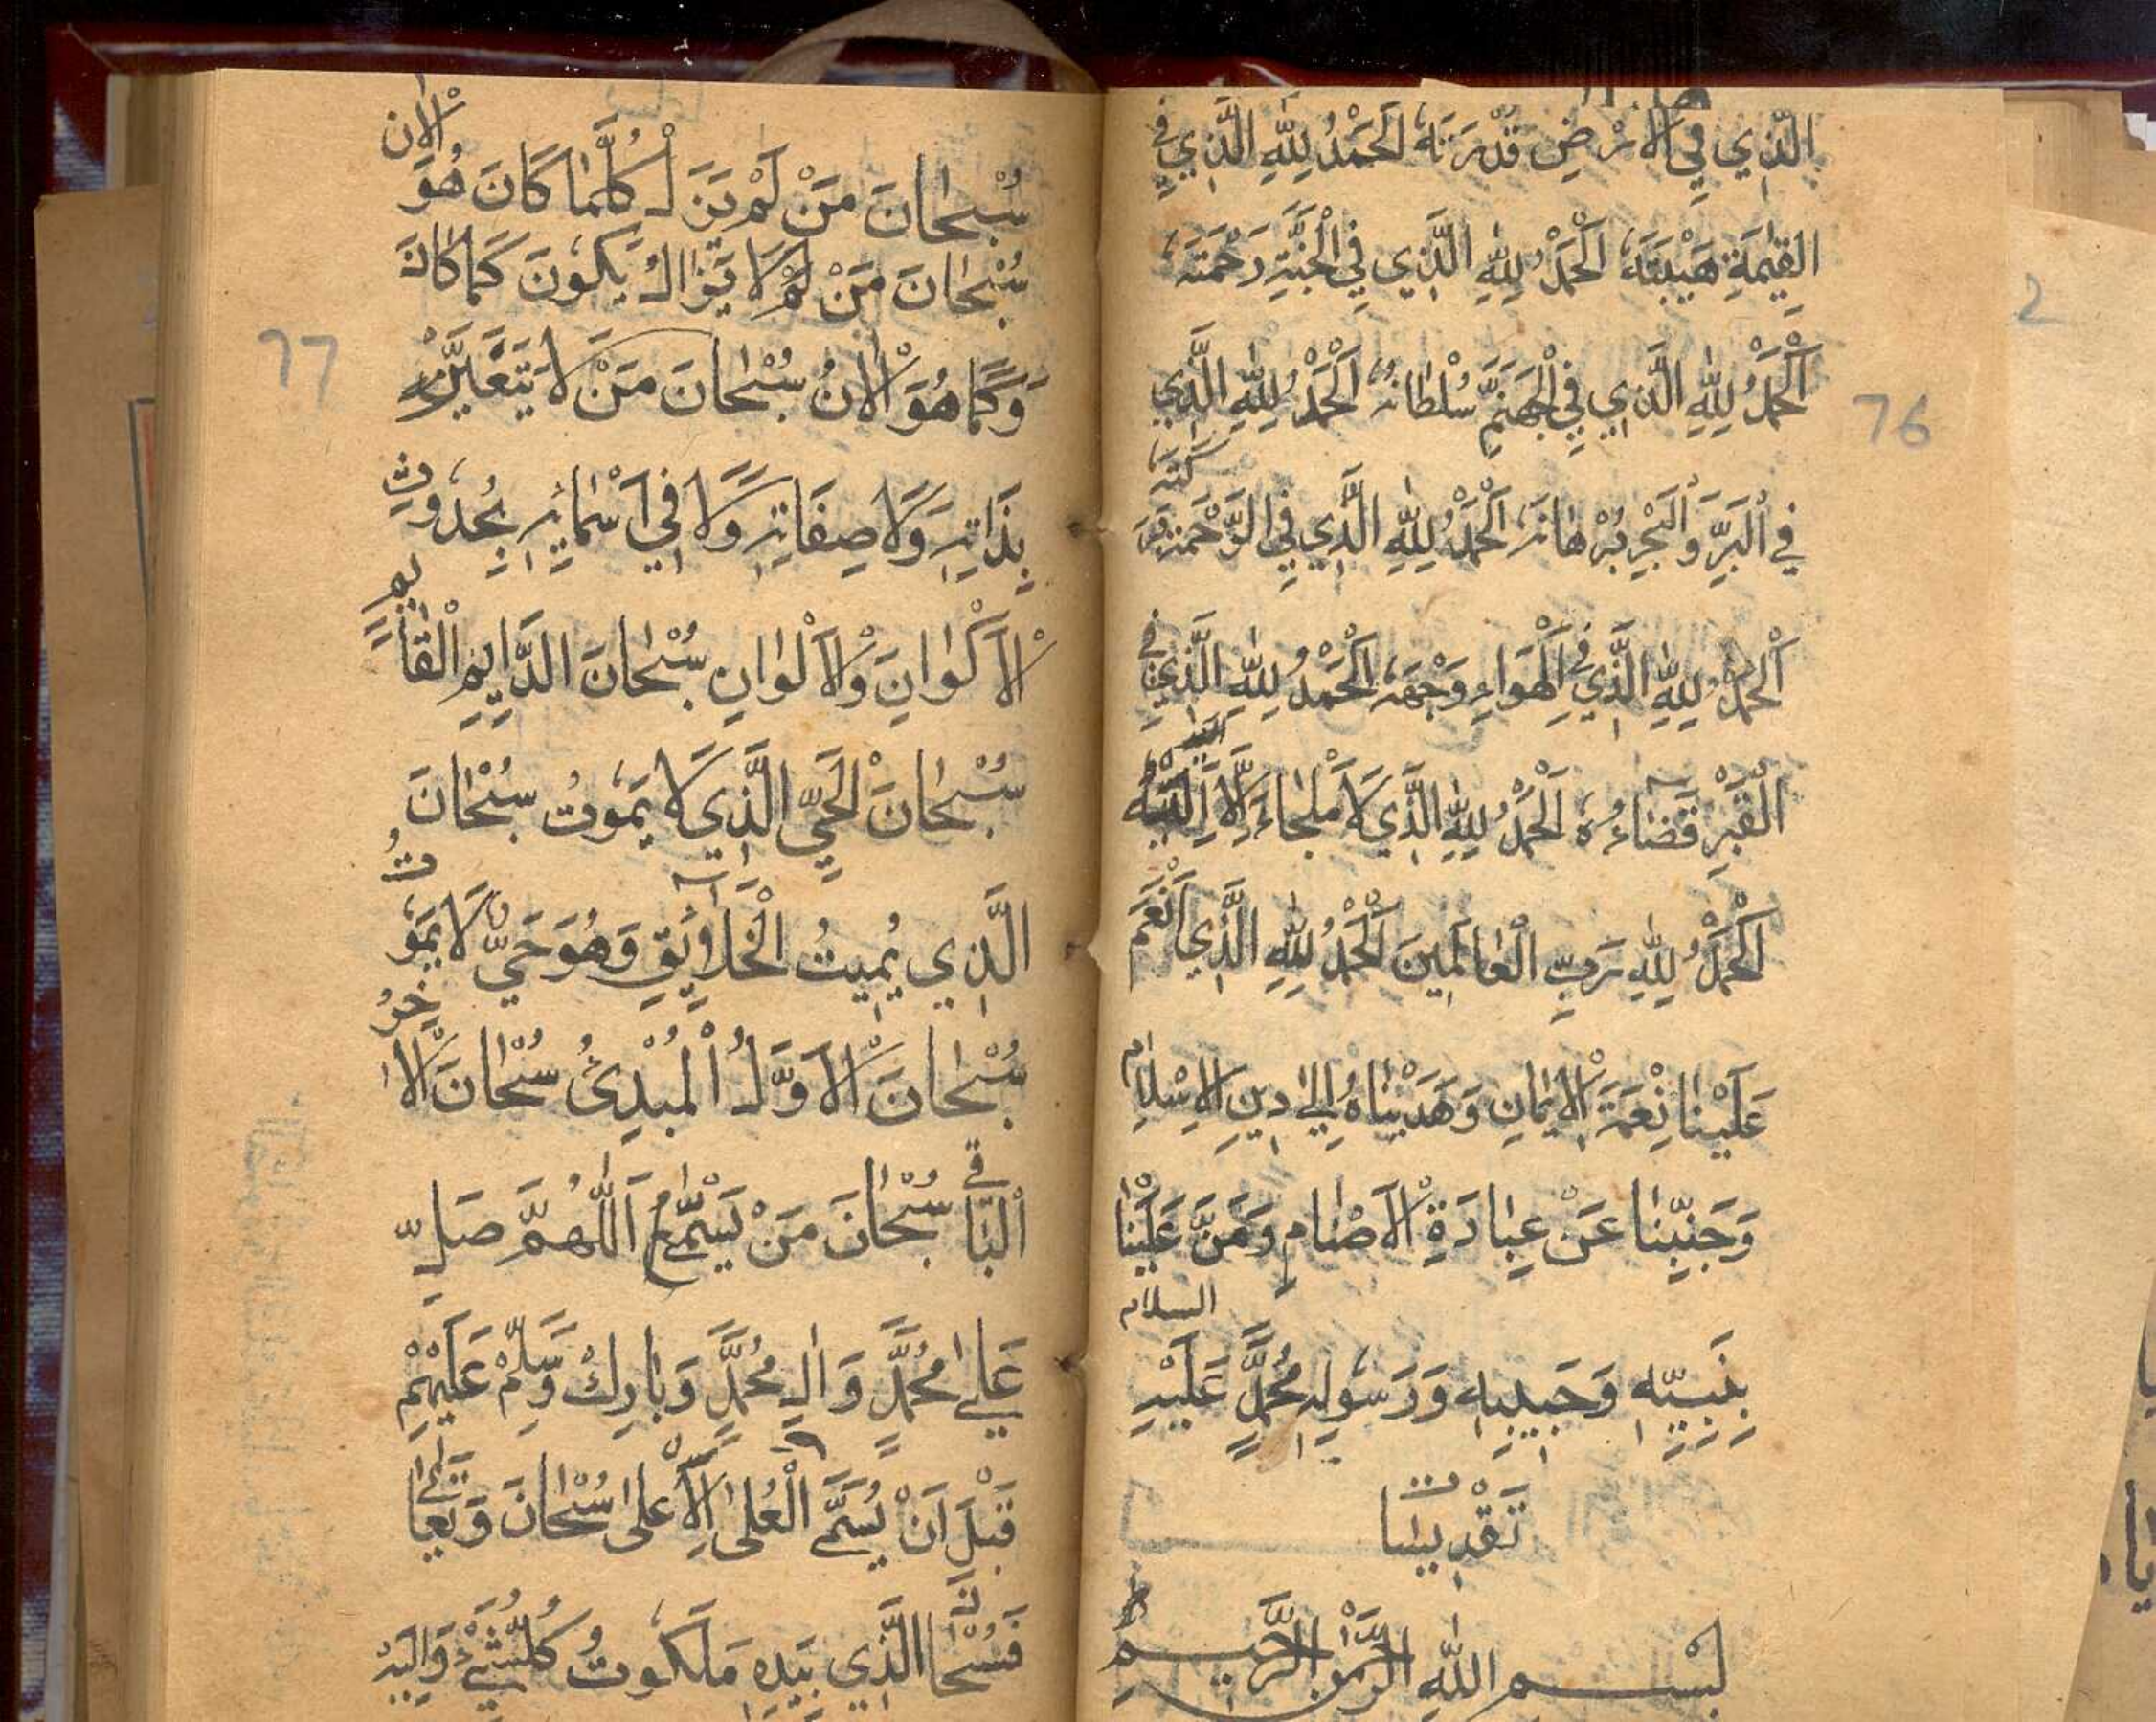 الَّذِي فِي الْاَرْضِ قُدْرَتَهُ اَلْحَمْدُ لِلّٰهِ الَّذِي فِي
الْقِيٰمَةِ هَيْبَتَهُ اَلْحَمْدُ لِلّٰهِ الَّذِي فِي الْجَنَّةِ رَحْمَتَهُ
76
اَلْحَمْدُ لِلّٰهِ الَّذِي فِي الْجَهَنَّمِ سُلْطَانُهُ اَلْحَمْدُ لِلّٰهِ الَّذِي
فِي الْبَرِّ وَالْبَحْرِ بُرْهَانَهُ اَلْحَمْدُ لِلّٰهِ الَّذِي فِي
اَلْحَمْدُ لِلّٰهِ الَّذِي فِي الْهَوَاءِ وَجْهَهُ اَلْحَمْدُ لِلّٰهِ الَّذِي فِي
الْقَبْرِ قَضَاءُهُ اَلْحَمْدُ لِلّٰهِ الَّذِي لَا مَلْجَاءَ اِلَّا اِلَيْهِ
اَلْحَمْدُ لِلّٰهِ رَبِّ الْعَالَمِينَ اَلْحَمْدُ لِلّٰهِ الَّذِي اَنْعَمَ
عَلَيْنَا نِعْمَةَ الْاِيْمَانِ وَهَدَيْنَاهُ اِلٰى دِينِ الْاِسْلَامِ
وَجَنِبْنَا عَنْ عِبَادَةِ الْاَصْنَامِ وَمَنَّ عَلَيْنَا
بِنَبِيِّهِ وَحَبِيبِهِ وَرَسُولِهِ مُحَمَّدٍ عَلَيْهِ السلام
تَقْدِيسَات
بِسْمِ اللّٰهِ الرَّحْمٰنِ الرَّحِيمِ
سُبْحَانَ مَنْ لَمْ يَزَلْ كُلَّمَا كَانَ هُوَ الْاٰن
سُبْحَانَ مَنْ لَا يَزَالُ يَكُونَ كَمَا كَانَ
77
وَكَمَا هُوَ الْاٰنُ سُبْحَانَ مَنْ لَا يَتَغَيَّرُ
بِذَاتِهِ وَلَا صِفَاتِهِ وَلَا فِي اَسْمَائِهِ بِحُدُوثِ
الْاَكْوَانِ وَالْاَلْوَانِ سُبْحَانَ الدَّايِمِ الْقَايِمِ
سُبْحَانَ الْحَيِّ الَّذِي لَا يَمُوتُ سُبْحَانَ
الَّذِي يُمِيتُ الْخَلَايِقِ وَهُوَ حَيٌّ لَا يَمُوتُ
سُبْحَانَ الْاَوَّلُ الْمُبْدِئُ سُبْحَانَ الْاٰخِرُ
الْبَاقِي سُبْحَانَ مَنْ اَللّٰهُمَّ صَلِّ
عَلٰى مُحَمَّدٍ وَاٰلِ مُحَمَّدٍ وَبَارِكْ وَسَلِّمْ عَلَيْهِمْ
قَبْلَ اَنْ يُسَمَّى الْعُلٰى الْاَعْلٰى سُبْحَانَ وَتَعَالٰى
فَسُبْحَانَ الَّذِي بِيَدِهِ مَلَكُوتُ كُلِّ شَيْءٍ وَاِلَيْهِ